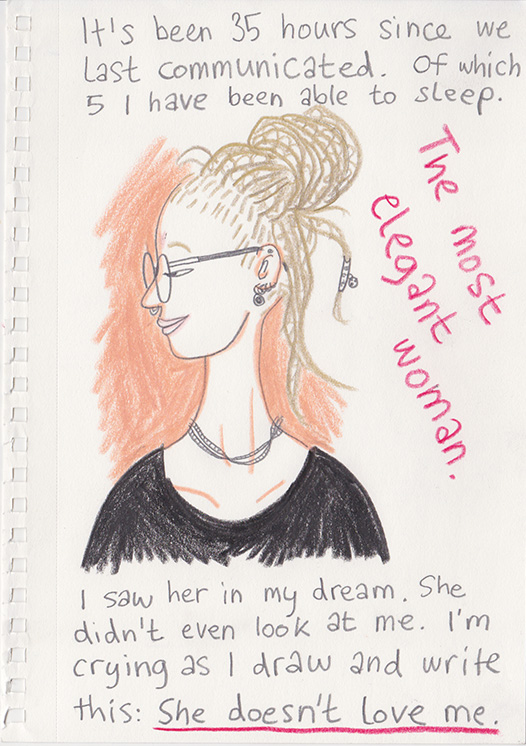 It's been 35 hours since we
last communicated. Of which
5 I have been able to sleep.
The most
elegant woman.
I saw her in my dream. She
didn't even look at me. I'm
crying as I draw and write
this: She doesn't love me.